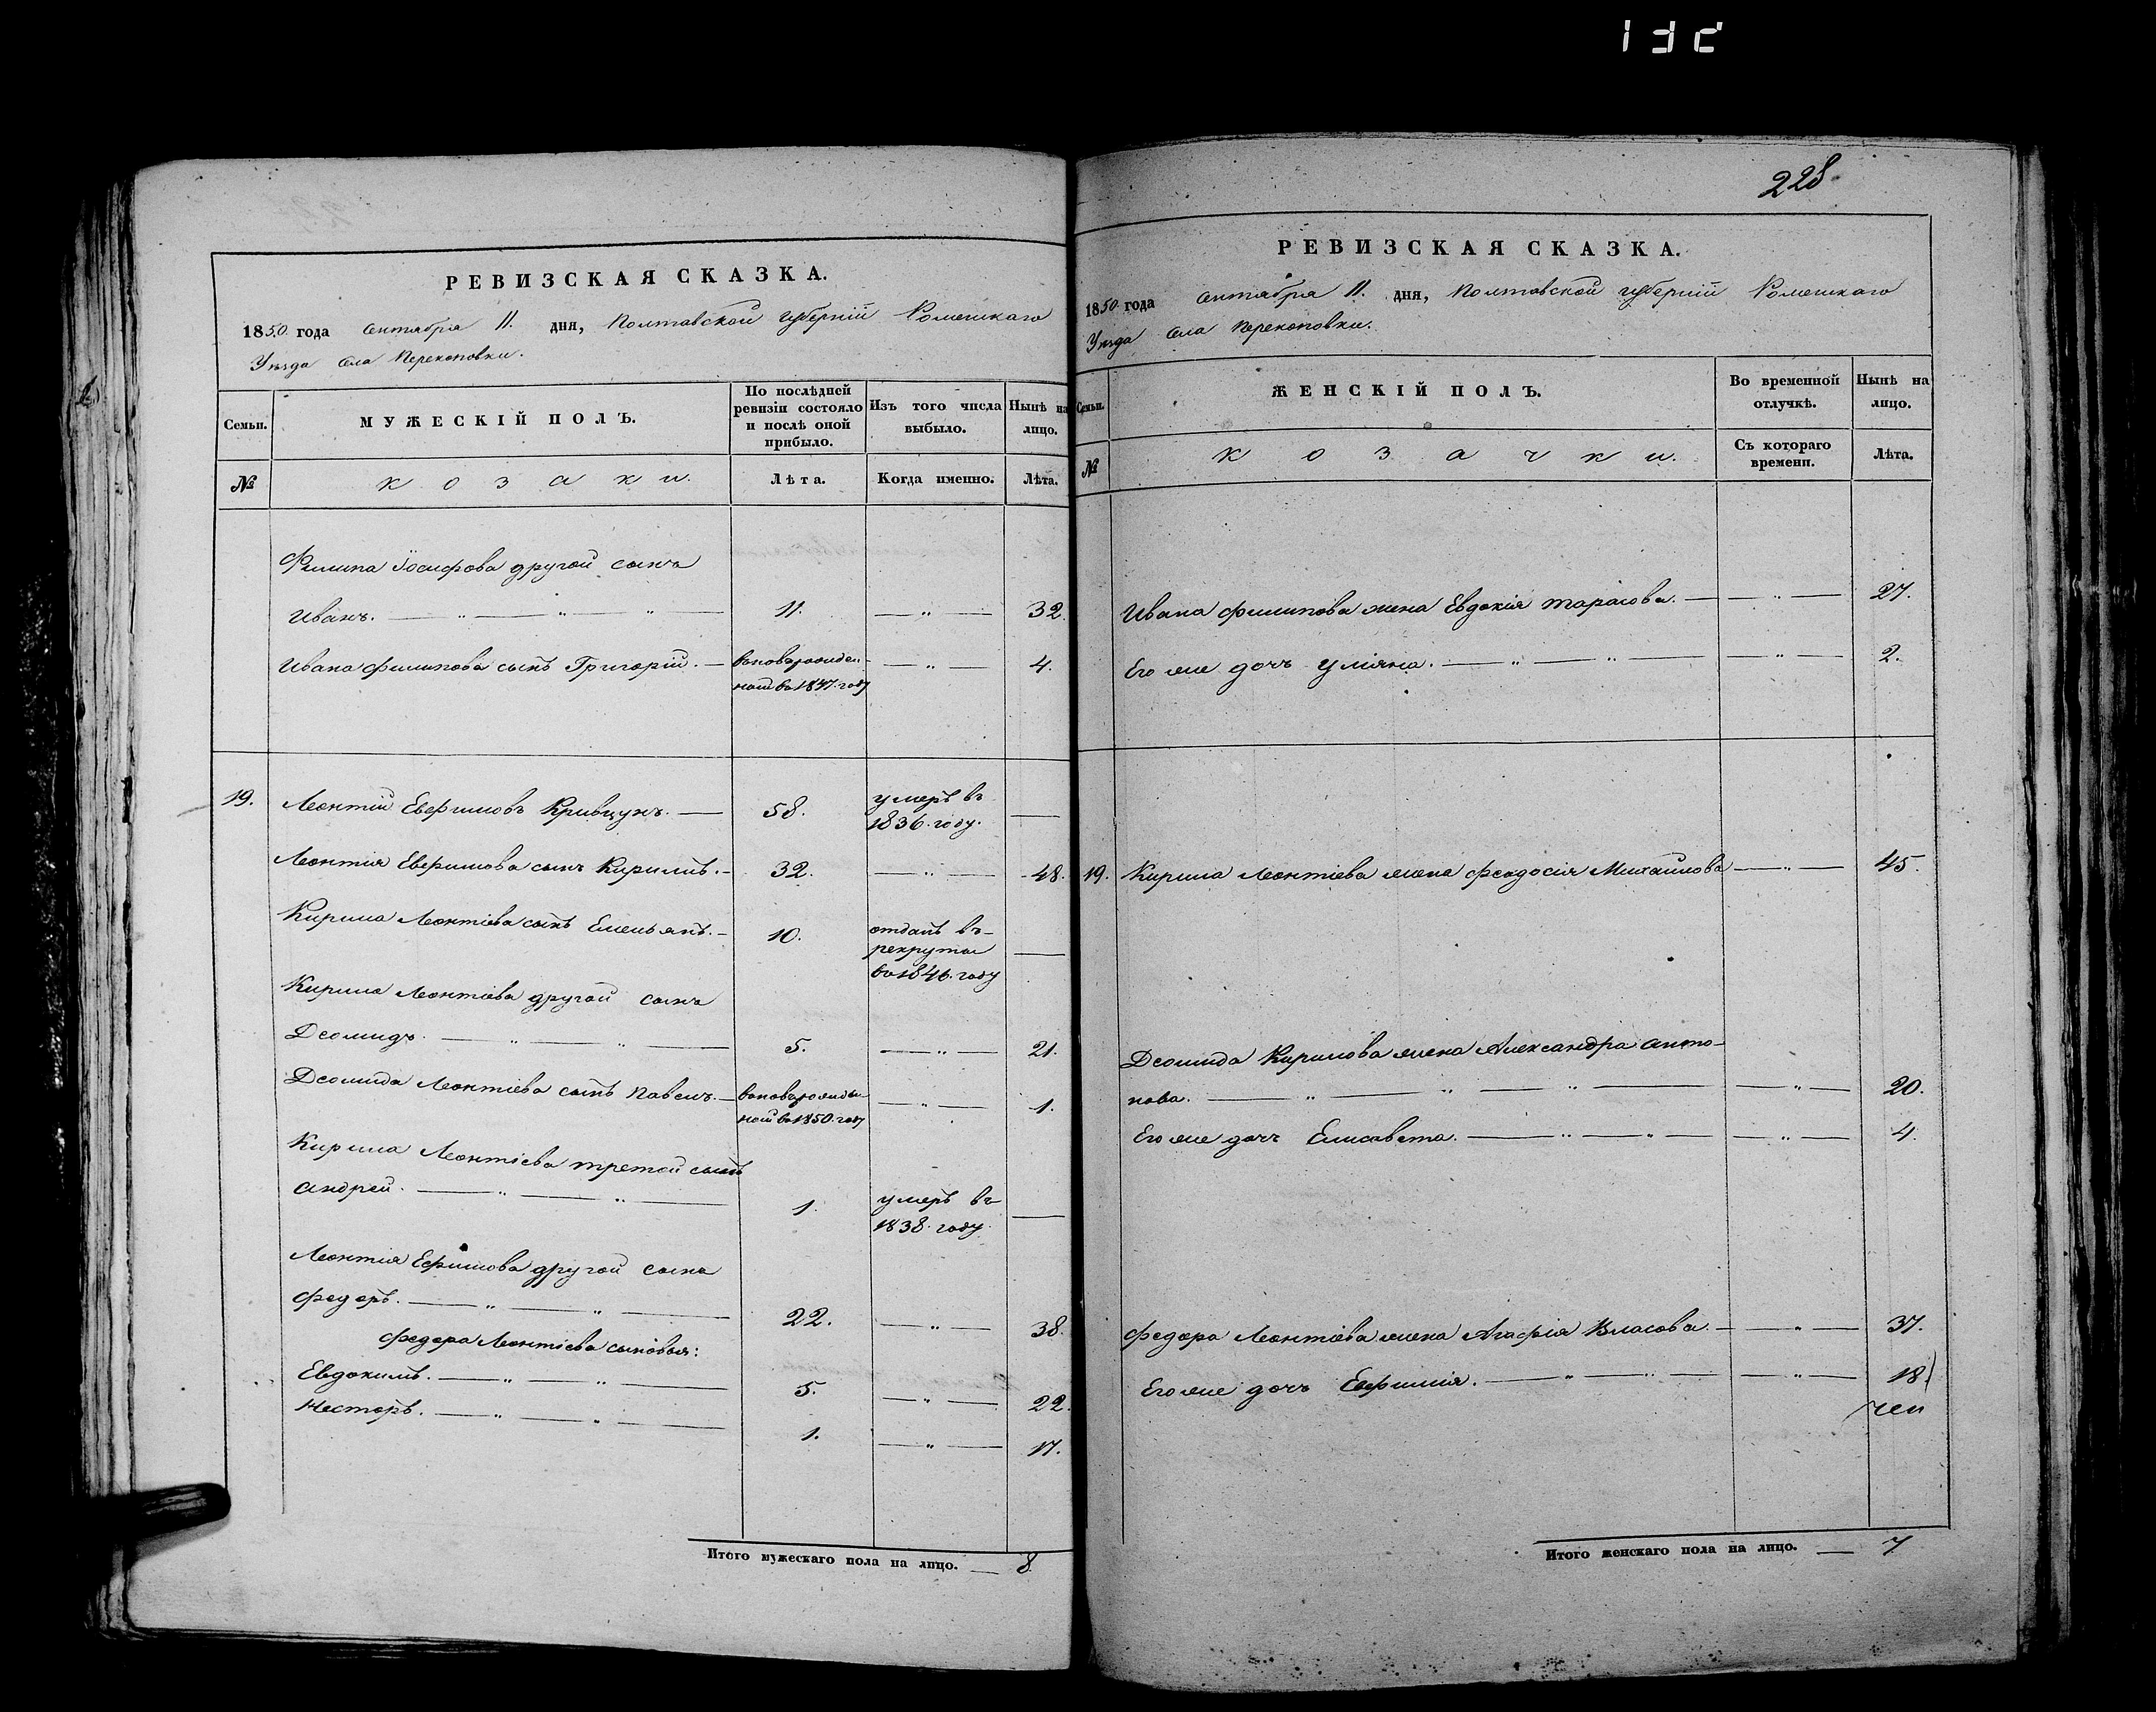 132
РЕВИЗСКАЯ СКАЗКА.
1850 года Сентября 11. дня, Полтавской губерніи Роменскаго
Уѣзда Села Перекоповки.
Семьи.
МУЖЕСКІЙ ПОЛЪ.
По послѣдней ревизіи состояло и послѣ оной прибыло.
Изъ того числа выбыло.
Нынѣ на лицо.
№
Козаки.
Лѣта.
Когда именно.
Лѣта.
Филипа Іосифова другой сынъ
Иванъ. — „ — „ „ — 11. — „ — 32.
Ивана Филипова сынъ Григорій. — вновьрожден- — „ — 4.
ной въ 1847. году
19. Леонтій Евфимовъ Кривцунъ. — 58. умеръ въ —
1836. году.
Леонтія Евфимова сынъ Кирилъ. — 32. — „ — 48.
Кирила Леонтіева сынъ Емельянъ. — 10. отданъ въ —
рекруты
въ 1846. году
Кирила Леонтіева другой сынъ
Дсомидъ. — „ — „ — 5. — „ — 21.
Дсомида Леонтіева сынъ Павелъ. — вновьрожден- — „ — 1.
ной въ 1850. году
Кирила Леонтіева третой сынъ
Андрей. — „ — „ — 1. умеръ въ —
1838. году.
Леонтія Ефимова другой сынъ
Федоръ. — „ — „ — 22. — „ — 38.
Федора Леонтіева сыновья:
Евдокимъ. — „ — „ — 5. — „ — 22.
Несторъ. — „ — „ — 1. — „ — 17.
Итого мужескаго пола на лицо. — 8.
228
РЕВИЗСКАЯ СКАЗКА.
1850 года Сентября 11. дня, Полтавской губерніи Роменскаго
Уѣзда Села Перекоповки.
Семьи.
ЖЕНСКІЙ ПОЛЪ.
Во временной отлучкѣ.
Нынѣ на лицо.
№
Козачки.
Съ котораго времени.
Лѣта.
Ивана Филипова жена Евдокія Тарасова. — — „ — 27.
Его же дочь Уліяна. — „ — „ — — „ — 2.
19. Кирила Леонтіева жена Феодосія Михайлова — „ — 45.
Дсомида Кирилова жена Александра Анто-
нова. — „ — „ — „ — — „ — 20.
Его же дочь Елисавета. — „ — „ — — „ — 4.
Федора Леонтіева жена Агафія Власова. — — „ — 37.
Его же дочь Евфимія. — „ — „ — — „ — 18.
Итого женскаго пола на лицо. — 7